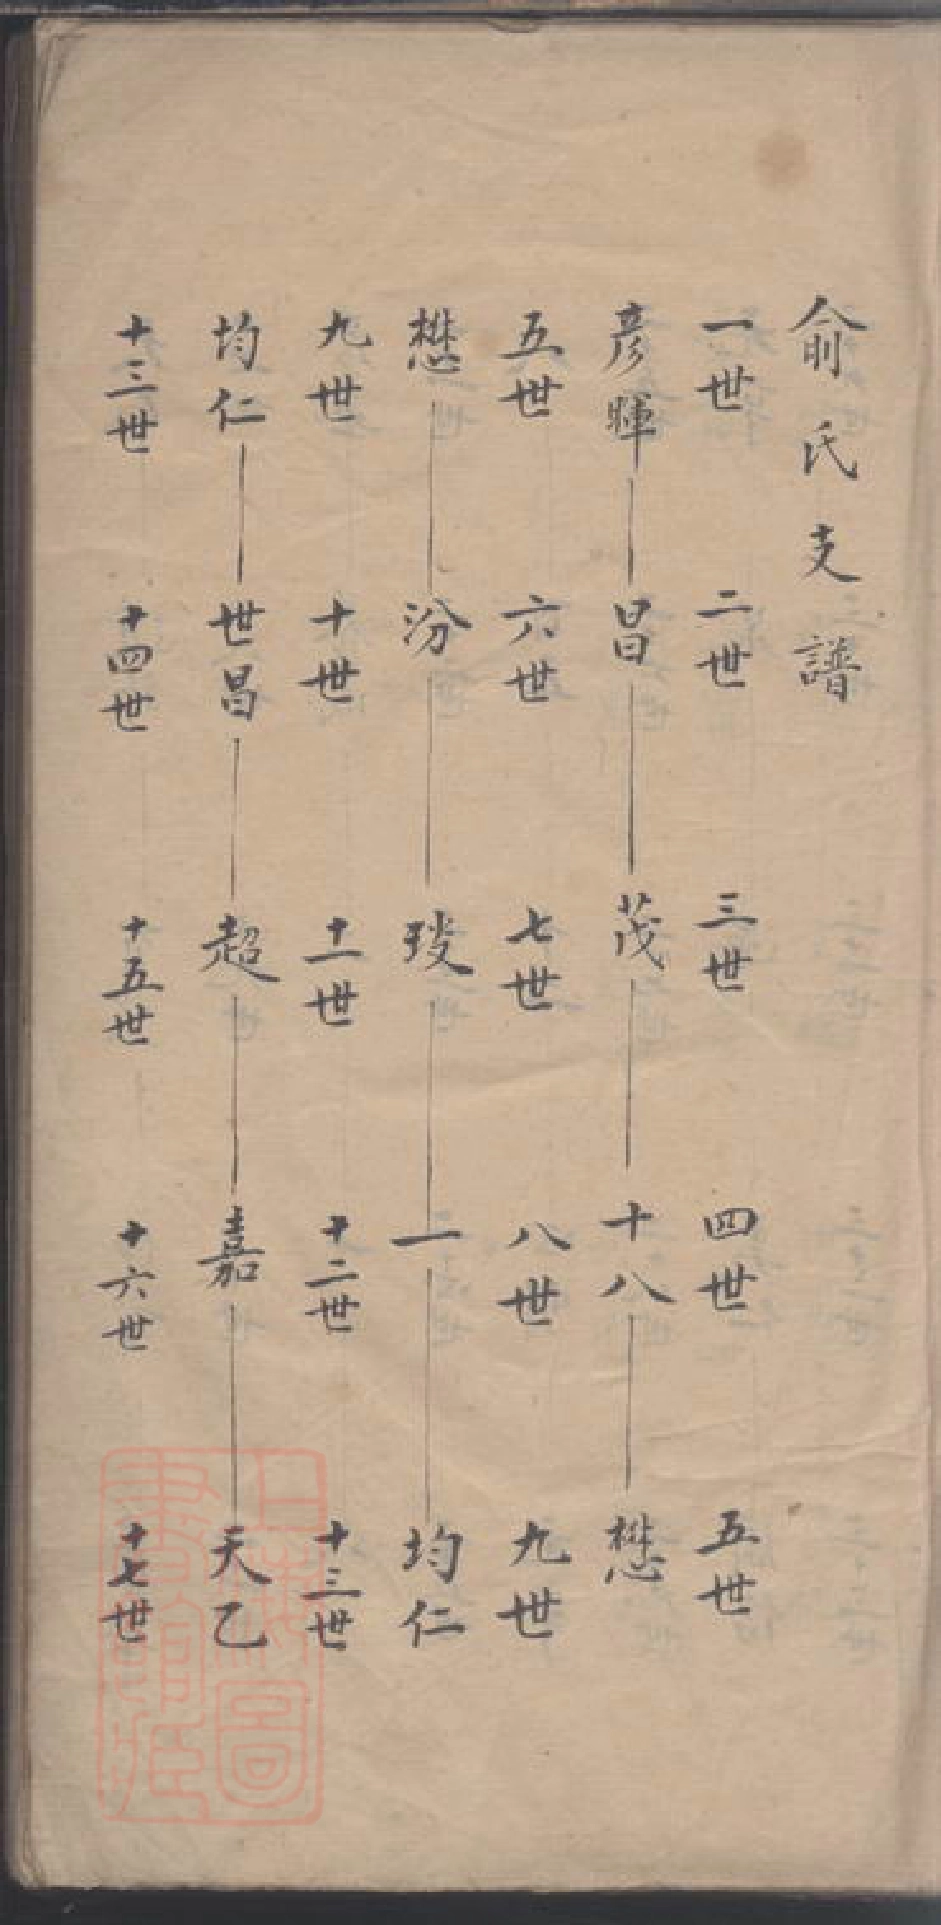 俞氏支譜
一世 二世 三世 四世 五世
彦暉 昌 茂 十八 懋
五世 六世 七世 八世 九世
懋 汾 一 均仁
九世 十世 十一世 十二世 十三世
均仁 世昌 超 嘉 天乙
十三世 十四世 十五世 十六世 十七世
上海圖
書館藏